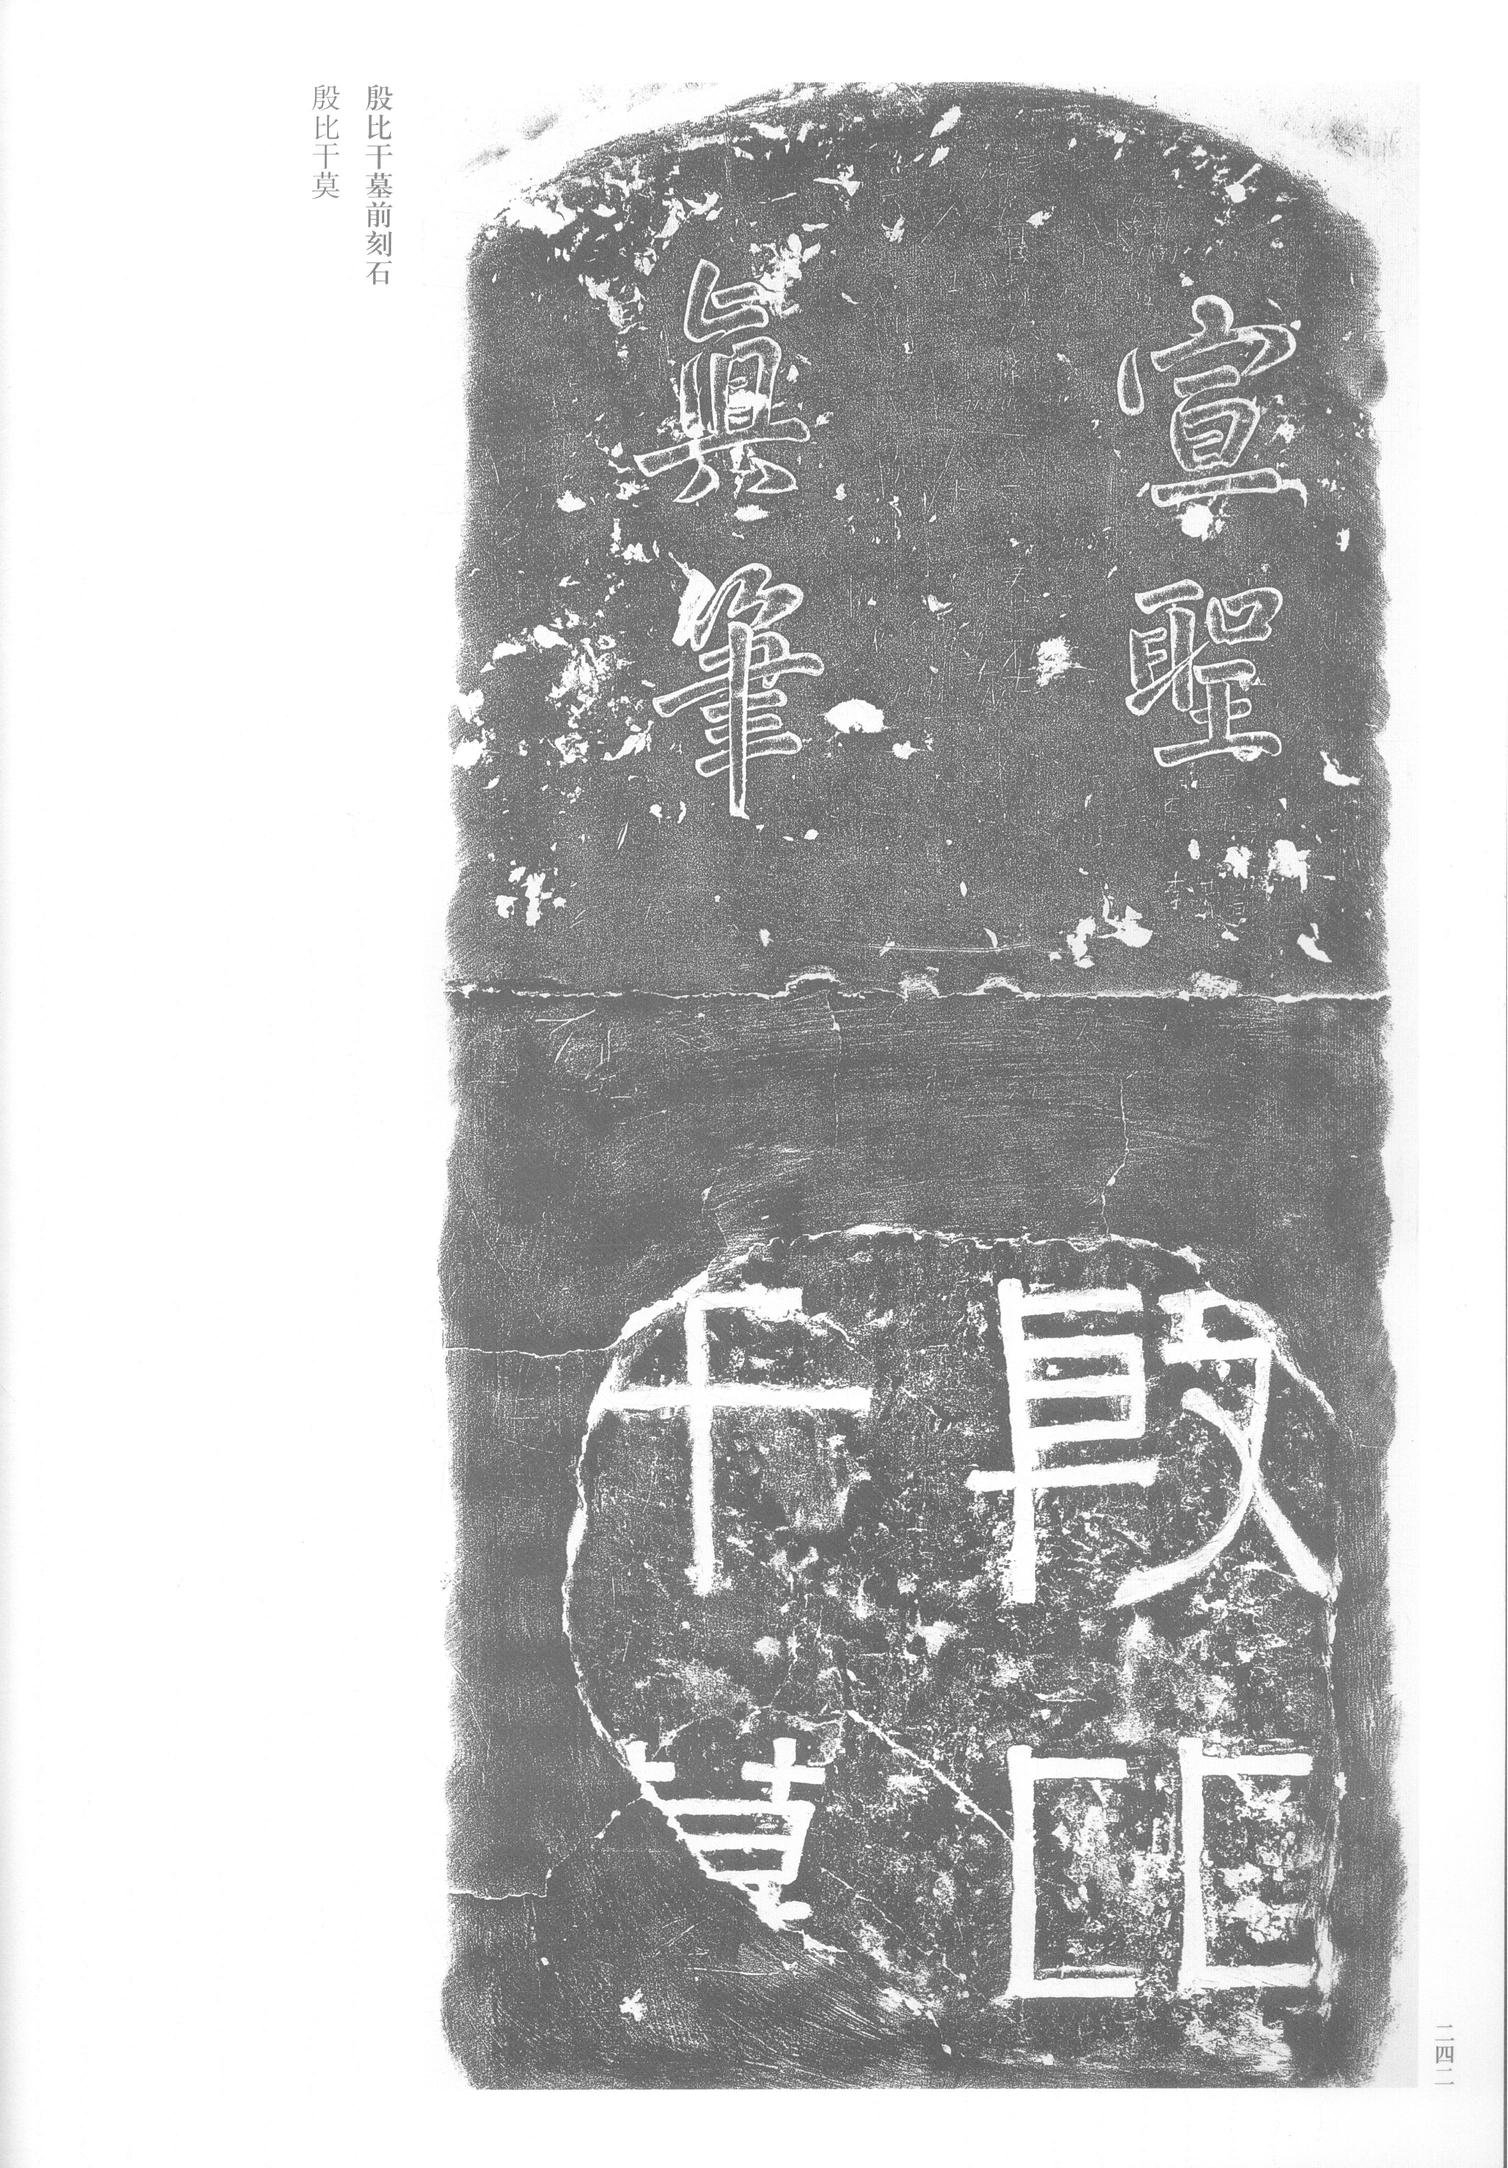 宣聖
真筆
殷比
干莫
殷比干墓前刻石
殷比干莫
二四二